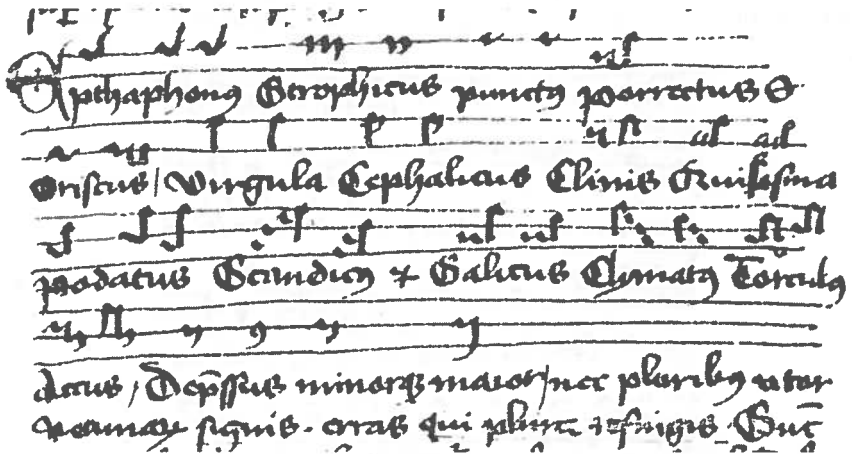 Epthaphonꝰ Strophicus punctꝰ porrectus &
Oriscus / virgula Cephalicus Clinis Quilisma
podatus Scandicꝰ & Salicus Clymacꝰ Torculꝰ
Ancus / Dep̄ssus minorqꝫ maior / nec pluribꝰ utor
Neumaꝝ signis · erras qui refingis · Sūt